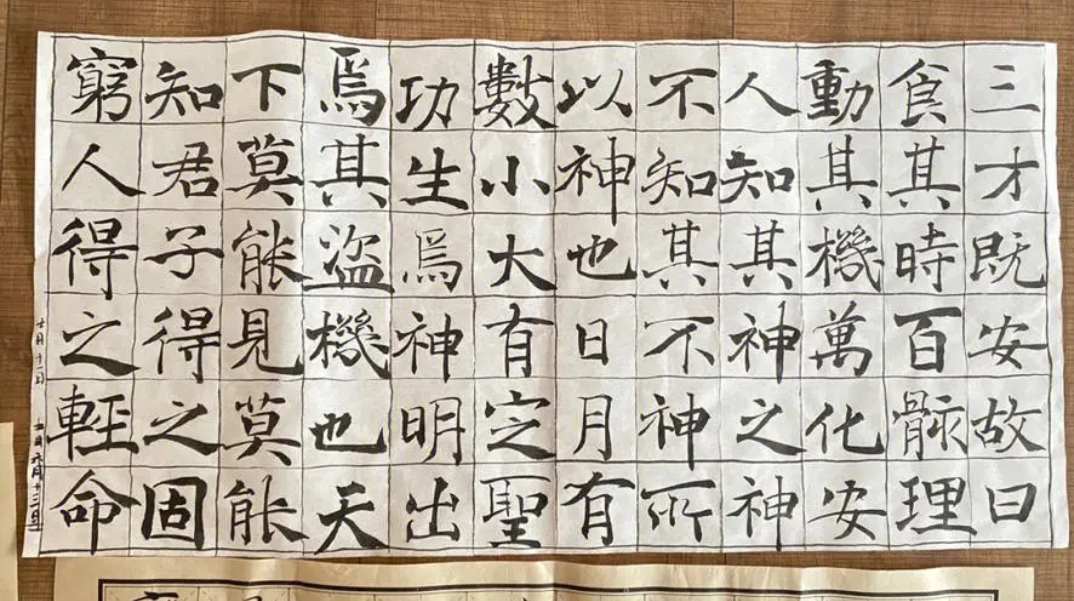 三才既安故曰
食其時百骸理
動其機萬化安
人知其神之神
不知其不神所
以神也日月有
數小大有定聖
功生焉神明出
焉其盜機也天
下莫能見莫能
知君子得之固
窮人得之輕命